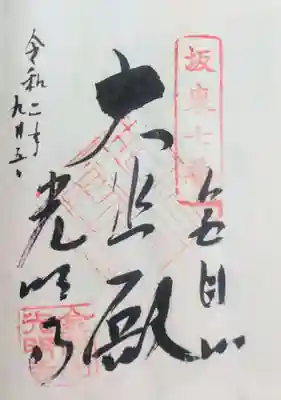 坂東七番
金目山
大悲殿
光明寺
令和二年
九月五日